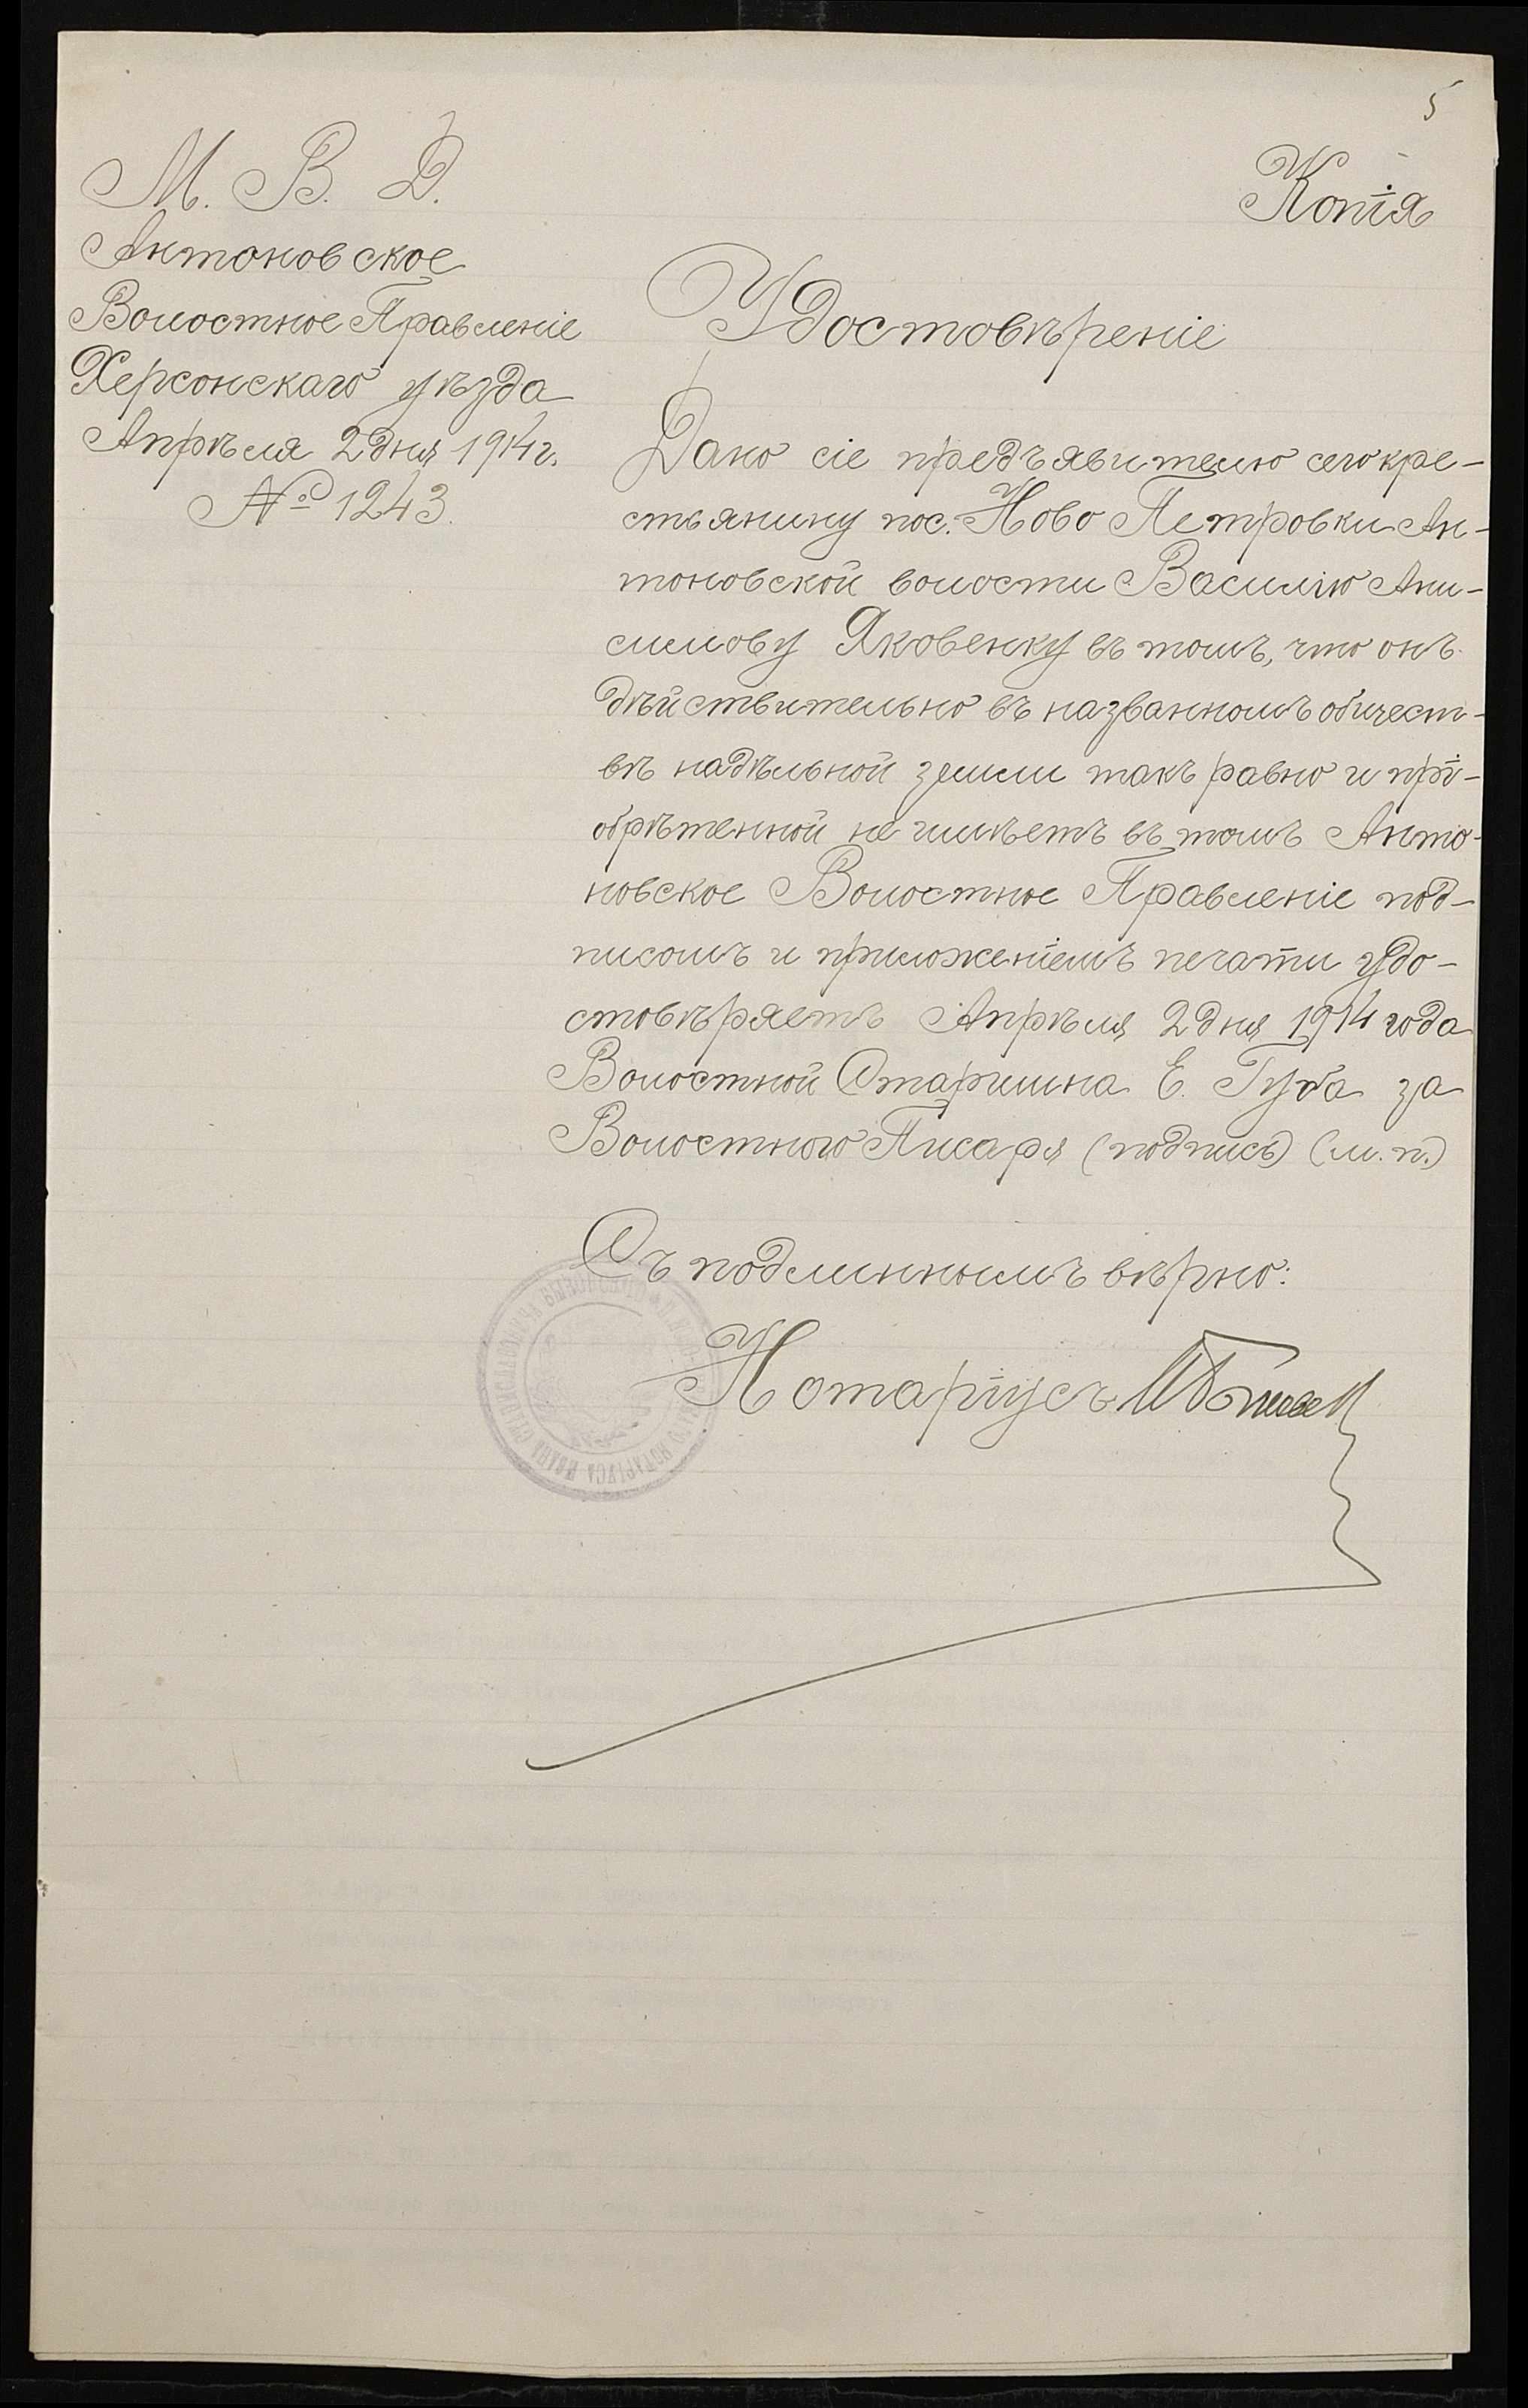 5
Копія
М. В. Д.
Антоновское
Волостное Правленіе
Херсонскаго уѣзда
Апрѣля 2 дня 1914 г.
№ 1243.
Удостовѣреніе
Дано сіе предъявителю сего кре-
стьянину пос. Ново Петровки Ан-
тоновской волости Василію Ани-
симову Яковенку въ томъ, что онъ
дѣйствительно въ названномъ общест-
вѣ надѣльной земли такъ равно и прі-
обрѣтенной не имѣетъ въ томъ Анто-
новское Волостное Правленіе под-
писомъ и приложеніемъ печати удо-
стовѣряетъ Апрѣля 2 дня 1914 года
Волостной Старшина Е. Губа за
Волостного Писаря (подпись) (м. п.)
Съ подлиннымъ вѣрно:
Нотаріусъ